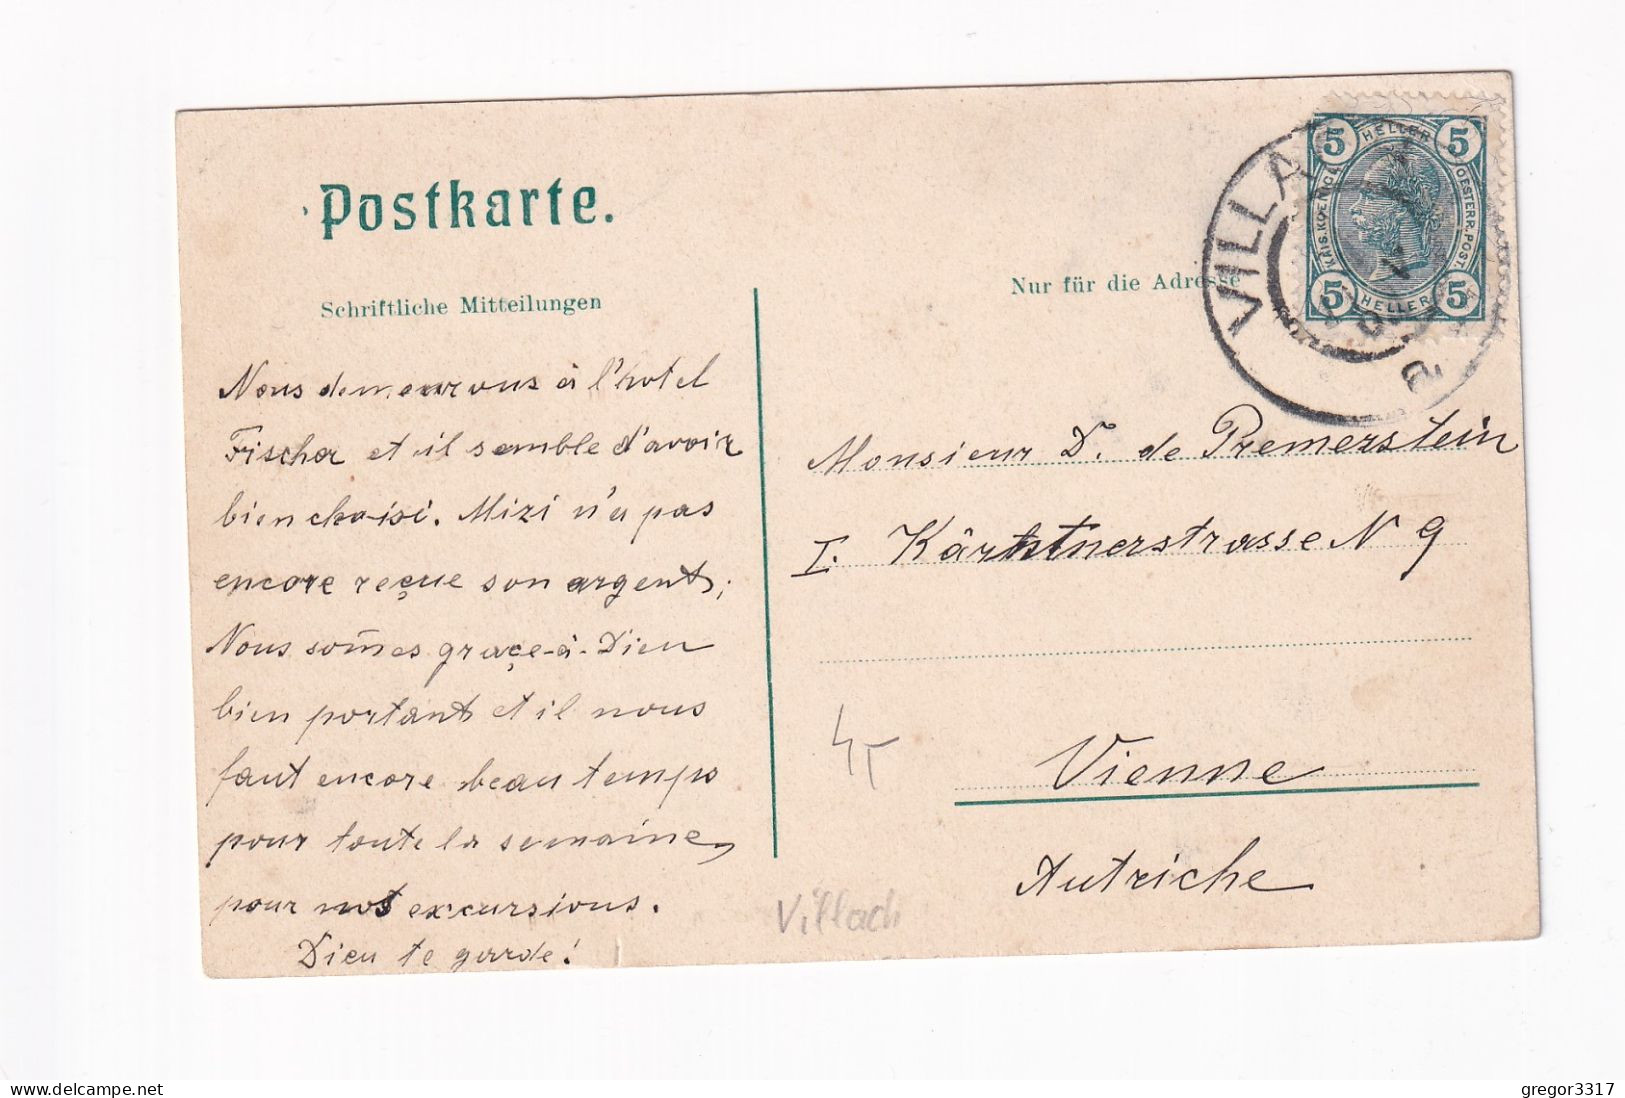 Postkarte.
Schriftliche Mitteilungen
Nur für die Adresse
5 HELLER 5
KAIS. KOENIGL. OESTERR. POST.
5 HELLER 5
VILLA
a
Nous demeurons à l'hotel
Fischer et il semble d'avoir
bien choisi. Mizi n'a pas
encore reçue son argent;
Nous som̄es graçe-à-Dieu
bien portants et il nous
faut encore beau temps
pour toute la semaine,
pour nos excursions.
Dieu te garde!
Monsieur Dr. de Premerstein
I. Kärntnerstrasse N 9
Vienne
Autriche
Villach
gregor3317